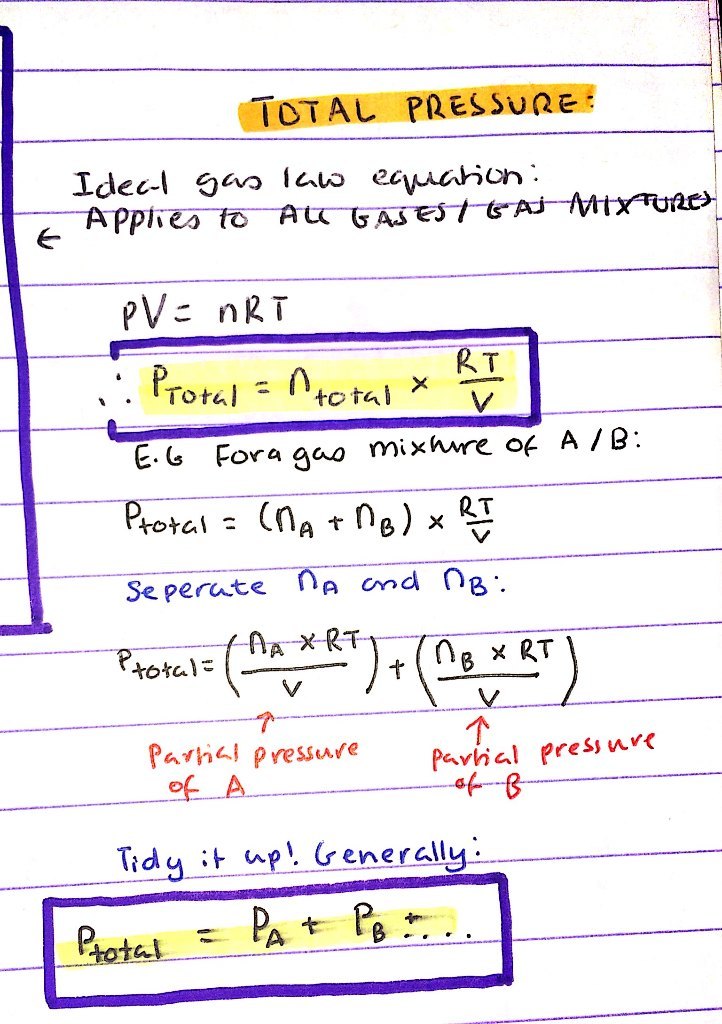 TOTAL PRESSURE:
Ideal gas law equation:
← Applies to ALL GASES / GAS MIXTURES
PV = nRT
∴ PTotal = ntotal × RT/V
E.G For a gas mixture of A / B:
Ptotal = (nA + nB) × RT/V
Seperate nA and nB:
Ptotal = (nA × RT / V) + (nB × RT / V)
↑ ↑
Partial pressure of A
Partial pressure of B
Tidy it up! Generally:
Ptotal = PA + PB + ...